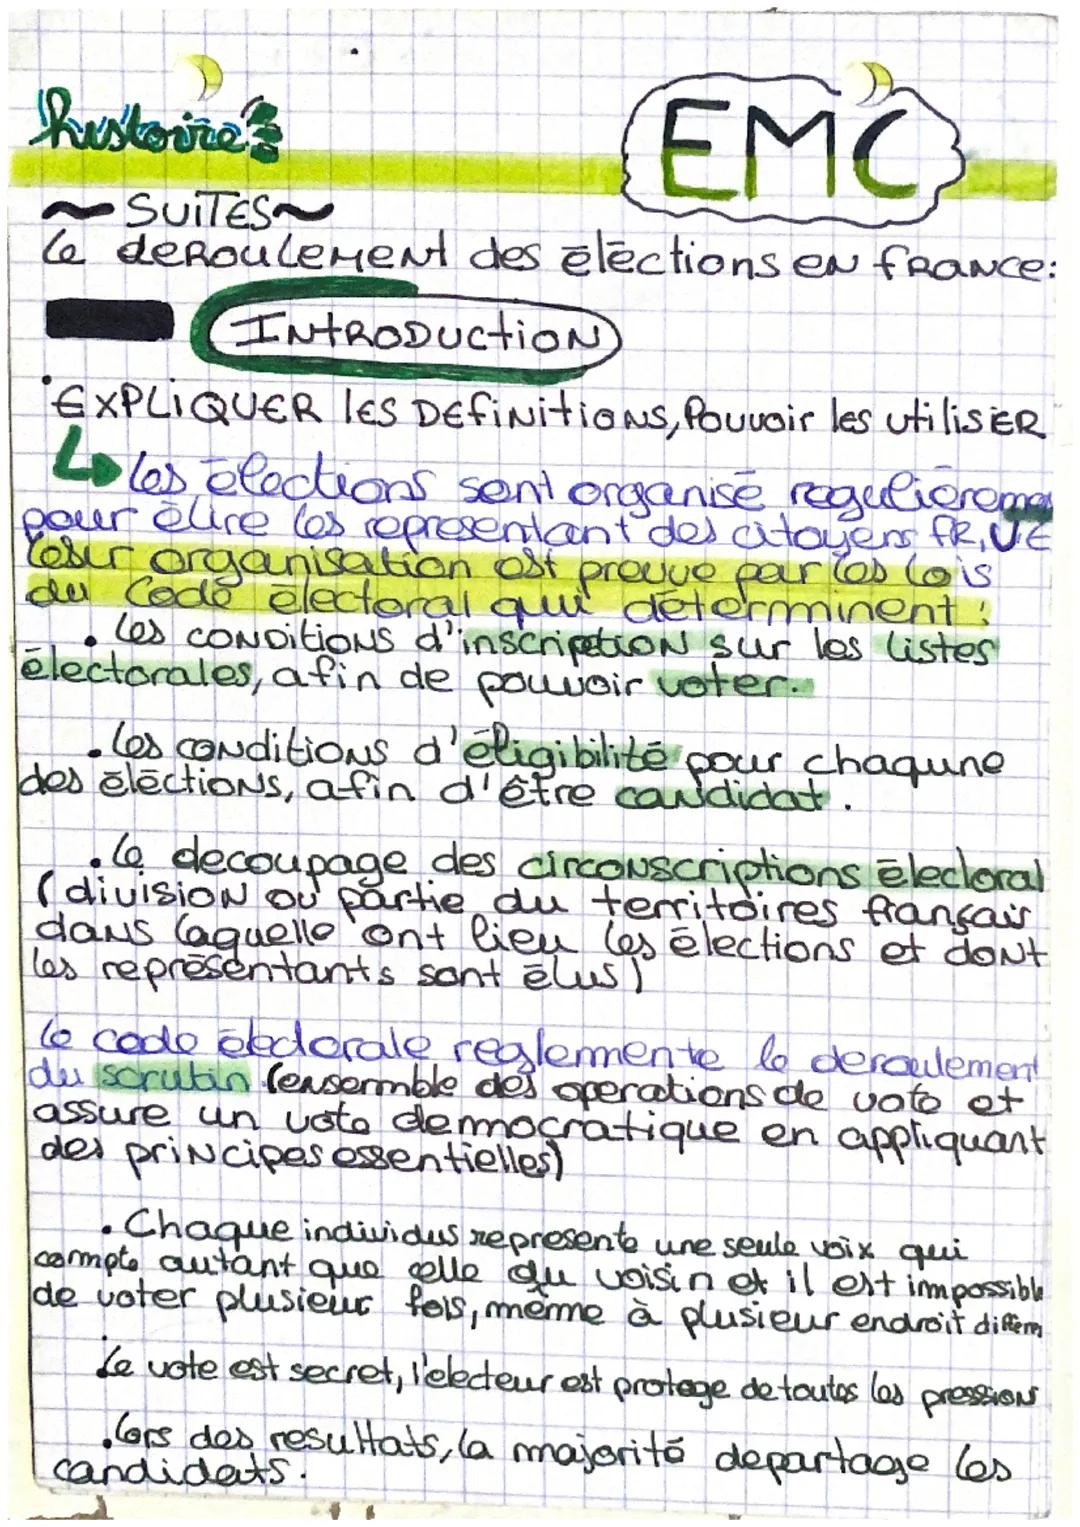 histoire
EMC
~ SUITES ~
Le deroulement des élections en france:
INTRODUCTION
EXPLIQUER les Definitions, Pouvoir les utiliser
↳ les élections sont organisé regulièremen
pour élire les representant des citoyens FR, UE
leur organisation est prevue par les lois
du Code électoral qui déterminent :
. les conditions d'inscription sur les listes
électorales, afin de pouvoir voter.
. les conditions d'éligibilité pour chaqune
des élections, afin d'être candidat.
. le decoupage des circonscriptions électoral
(division ou partie du territoires français
dans laquelle ont lieu les élections et dont
les représentants sont élus)
le code électorale reglemente le deroulement
du scrutin (ensermble des operations de vote et
assure un vote democratique en appliquant
des principes essentielles)
. Chaque individus represente une seule voix qui
compte autant que celle du voisin et il est impossible
de voter plusieur fois, même à plusieur endroit différn
. Le vote est secret, l'electeur est protege de toutes les pression
. lors des resultats, la majorité departage les
candidats.